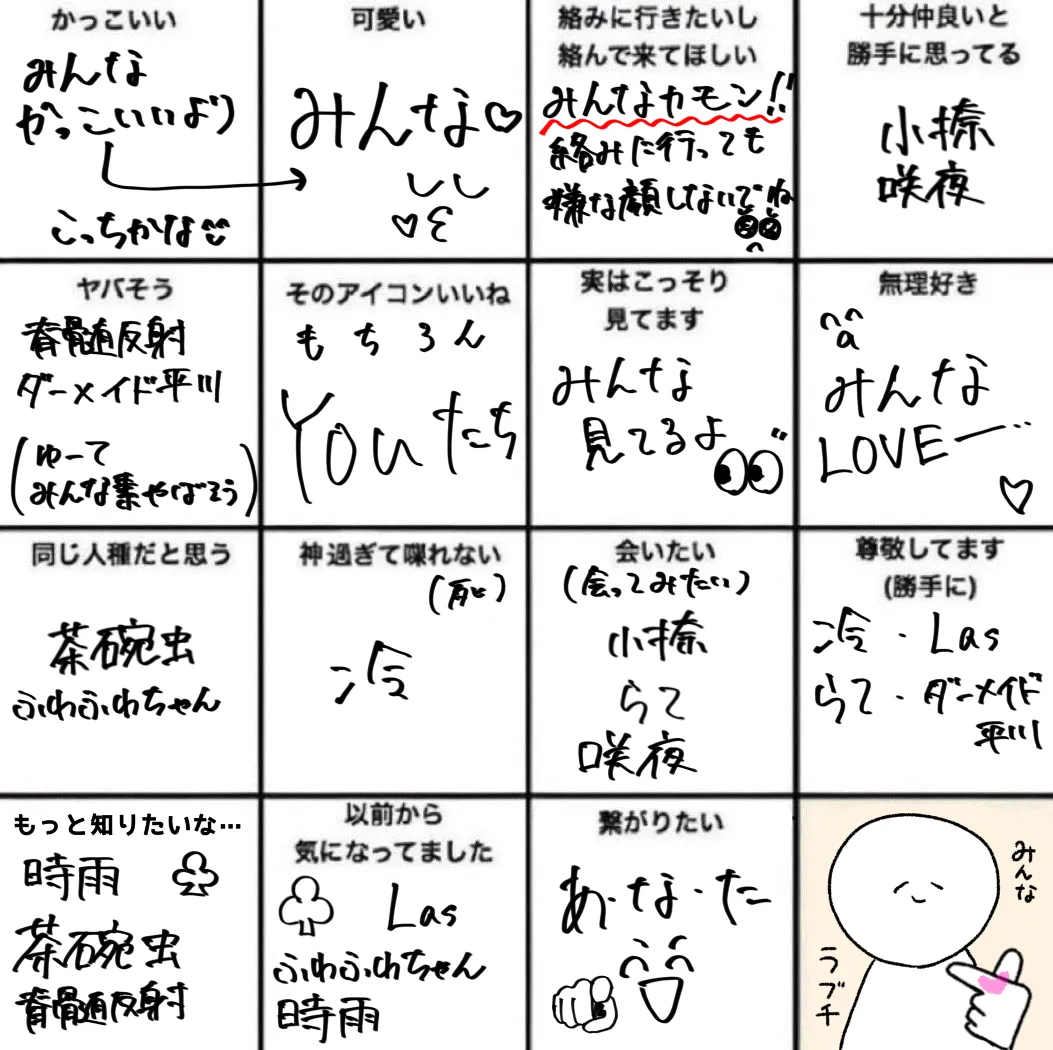 かっこいい
みんな
かっこいいより
こっちかな
可愛い
みんな♡
絡みに行きたいし
絡んで来てほしい
みんなカモン!!
絡みに行っても
嫌な顔しないでね
十分仲良いと
勝手に思ってる
小捺
咲夜
ヤバそう
脊髄反射
ダーメイド平川
(ゆーて
みんな業やばそう)
そのアイコンいいね
もちろん
Youたち
実はこっそり
見てます
みんな
見てるよ
無理好き
みんな
LOVEー
♡
同じ人種だと思う
茶碗虫
ふわふわちゃん
神過ぎて喋れない
冷
会いたい
(会ってみたい)
小捺
らて
咲夜
尊敬してます
(勝手に)
冷・Las
らて・ダーメイド
平川
もっと知りたいな…
時雨 ♧
茶碗虫
脊髄反射
以前から
気になってました
♧ Las
ふわふわちゃん
時雨
繋がりたい
あ・な・た
みんな
ラブチ